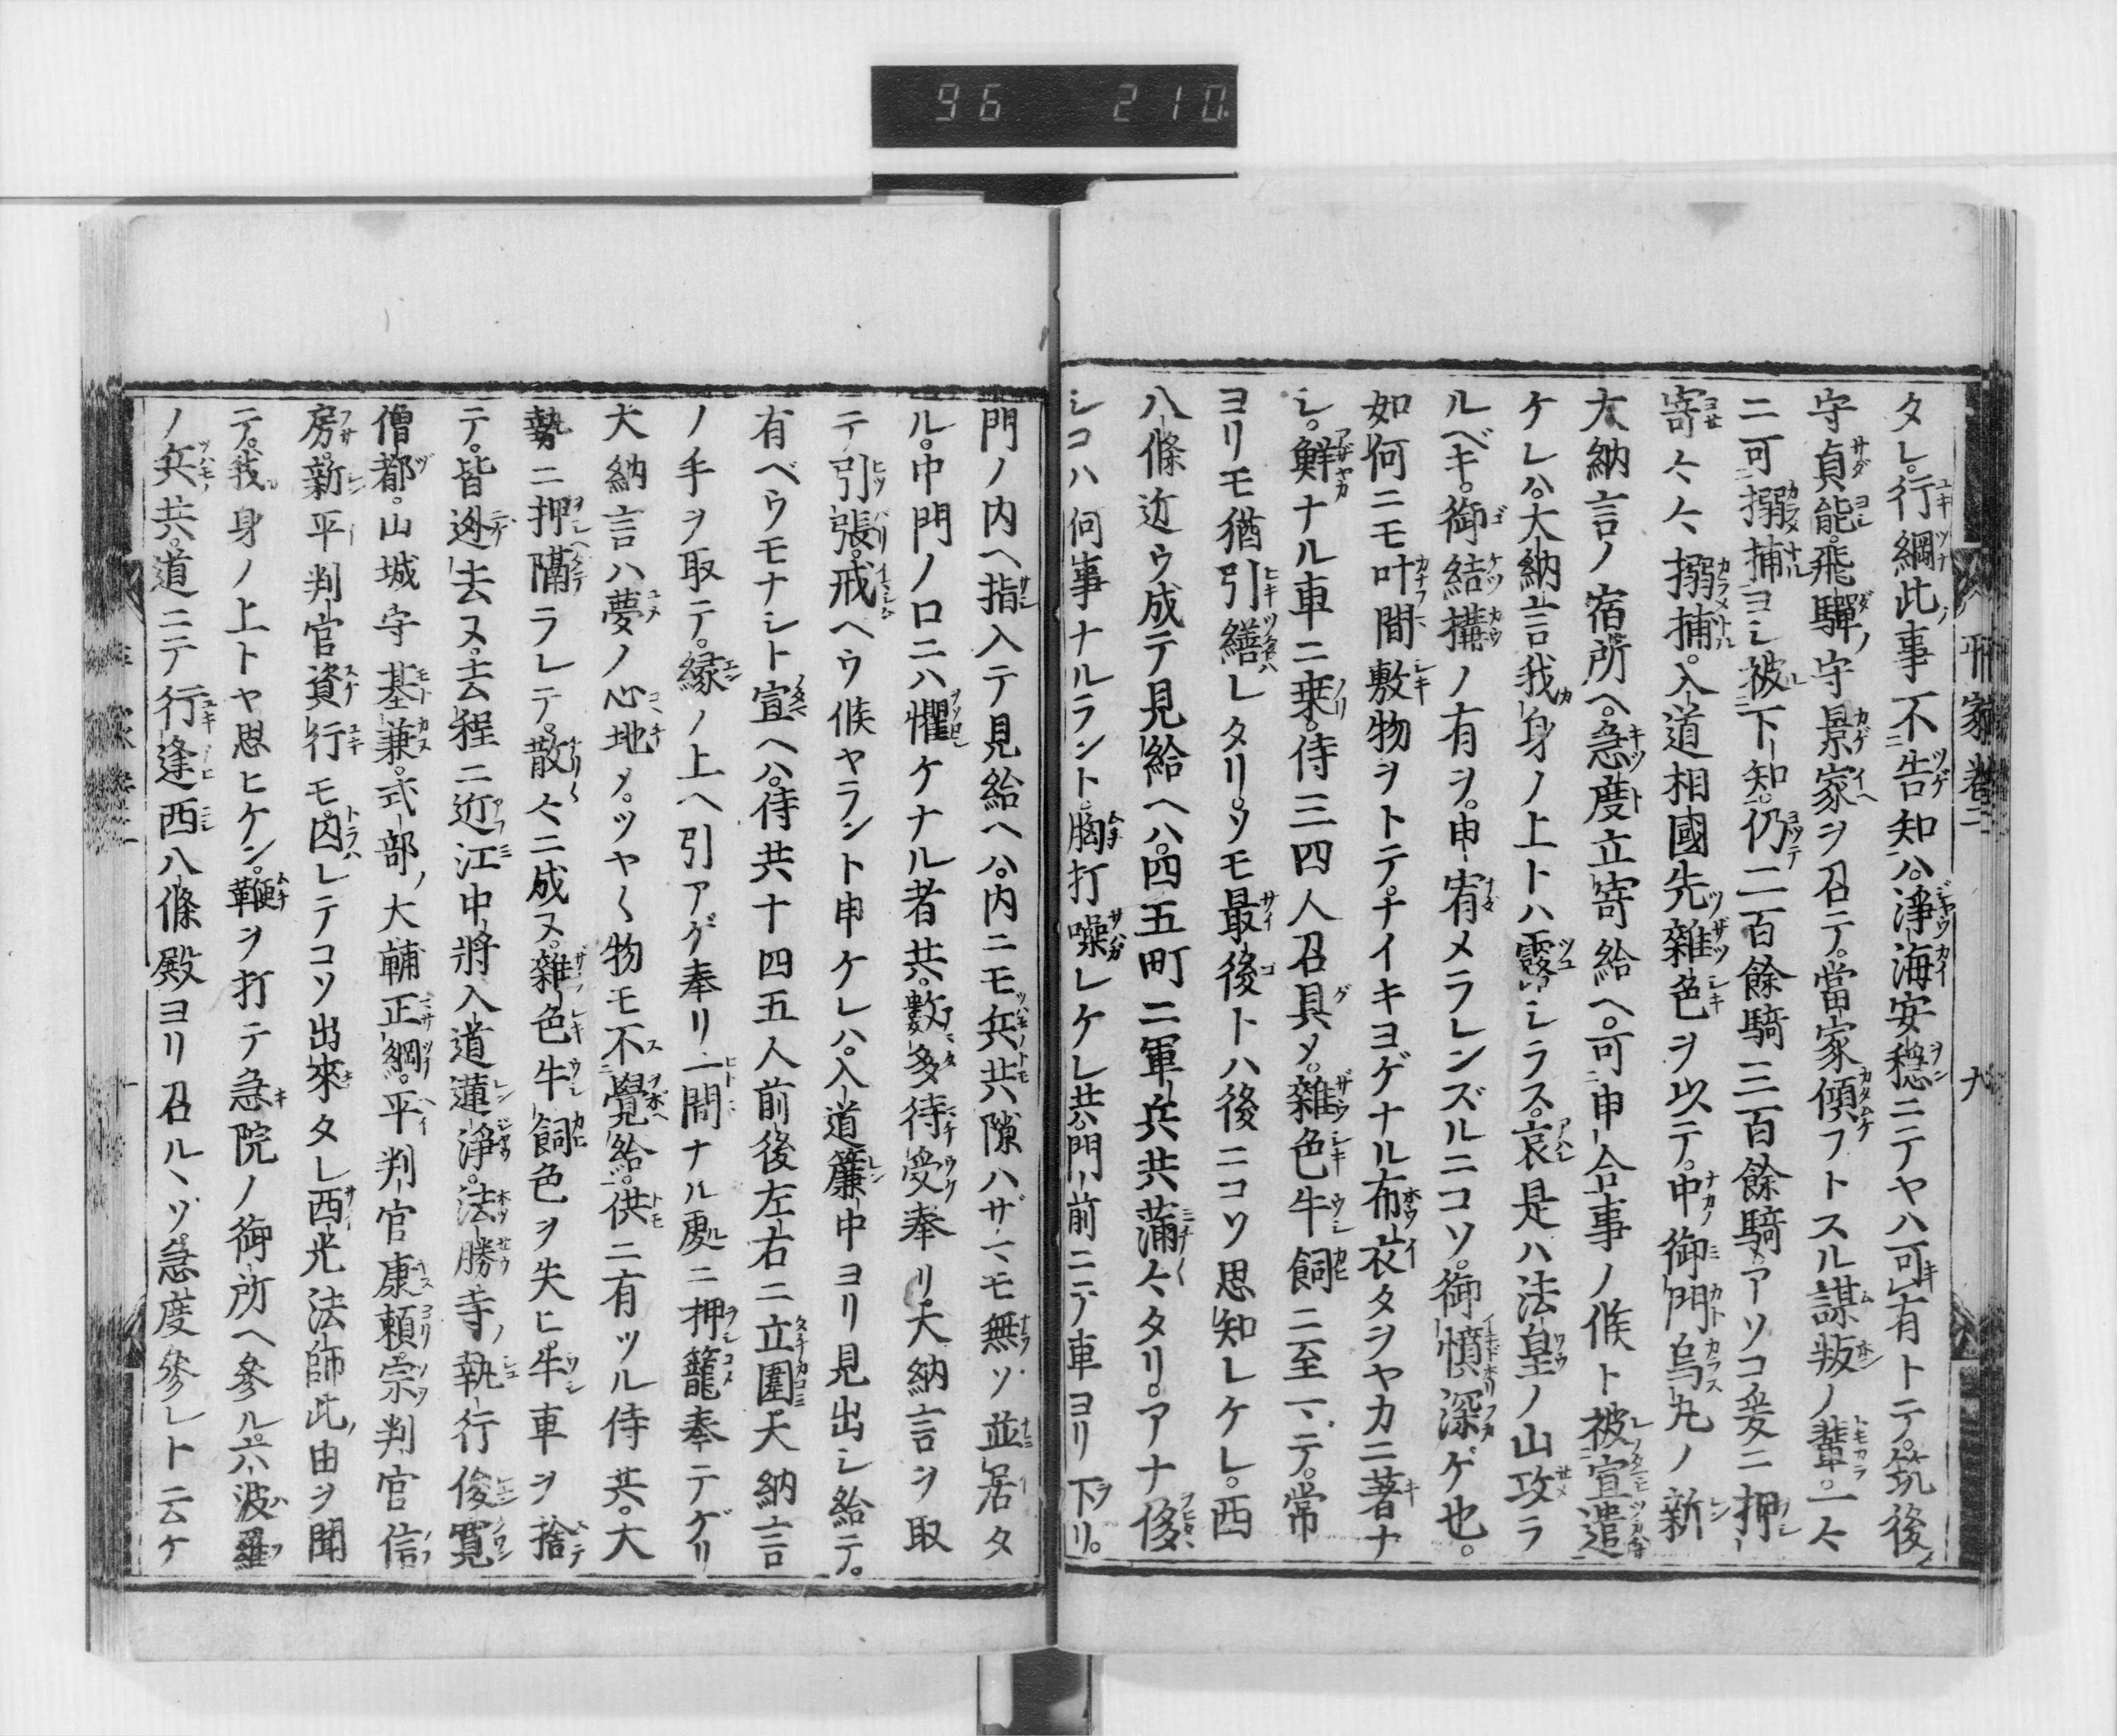 96 210
平家巻二
九
タレ。行綱此事不告知ハ。淨海安穩ニテヤハ可有トテ。筑後
守貞能。飛驒ノ守景家ヲ召テ。當家傾フトスル謀叛ノ輩。一々
ニ可搦捕ヨシ被下知。仍二百餘騎三百餘騎アソコ爰ニ押
寄々々搦捕。入道相國先雜色ヲ以テ。中御門烏丸ノ新
大納言ノ宿所ヘ。急度立寄給ヘ。可申合事ノ候ト被宣遣
ケレハ。大納言我身ノ上トハ露シラス。哀是ハ法皇ノ山攻ラ
ルベキ。御結構ノ有ヲ。申宥メラレンズルニコソ。御憤深ゲ也。
如何ニモ叶間敷物ヲトテ。チイキヨゲナル布衣タヲヤカニ著ナ
シ。鮮ナル車ニ乗。侍三四人召具メ。雜色牛飼ニ至マテ。常
ヨリモ猶引繕レタリ。ソモ最後トハ後ニコソ思知レケレ。西
八條近ウ成テ見給ヘハ。四五町ニ軍兵共滿々タリ。アナ侈
シコハ何事ナルラント。胸打噪レケレ共。門前ニテ車ヨリ下リ。
門ノ内ヘ指入テ見給ヘハ。内ニモ兵共隙ハザマモ無ソ並居タ
ル。中門ノ口ニハ懼ケナル者共。數多待受奉リ。大納言ヲ取
テ引張。戒ヘウ候ヤラント申ケレハ。入道簾中ヨリ見出シ給テ。
有ベウモナシト宣ヘハ。侍共十四五人前後左右ニ立圍。大納言
ノ手ヲ取テ。縁ノ上ヘ引アゲ奉リ。一間ナル處ニ押籠奉テゲリ
大納言ハ夢ノ心地メ。ツヤ〱物モ不覺給。供ニ有ツル侍共。大
勢ニ押隔ラレテ。散々ニ成ヌ。雜色牛飼色ヲ失ヒ。牛車ヲ捨
テ。皆迯去ヌ。去程ニ近江中將入道蓮淨。法勝寺ノ執行俊寛
僧都。山城守基兼。式部ノ大輔正綱。平判官康頼。宗判官信
房。新平判官資行モ。囚レテコソ出來タレ西光法師此由ヲ聞
テ。我身ノ上トヤ思ヒケン。鞭ヲ打テ急院ノ御所ヘ參ル。六波羅
ノ兵共。道ニテ行逢。西八條殿ヨリ召ルヽソ。急度參レト云ケ